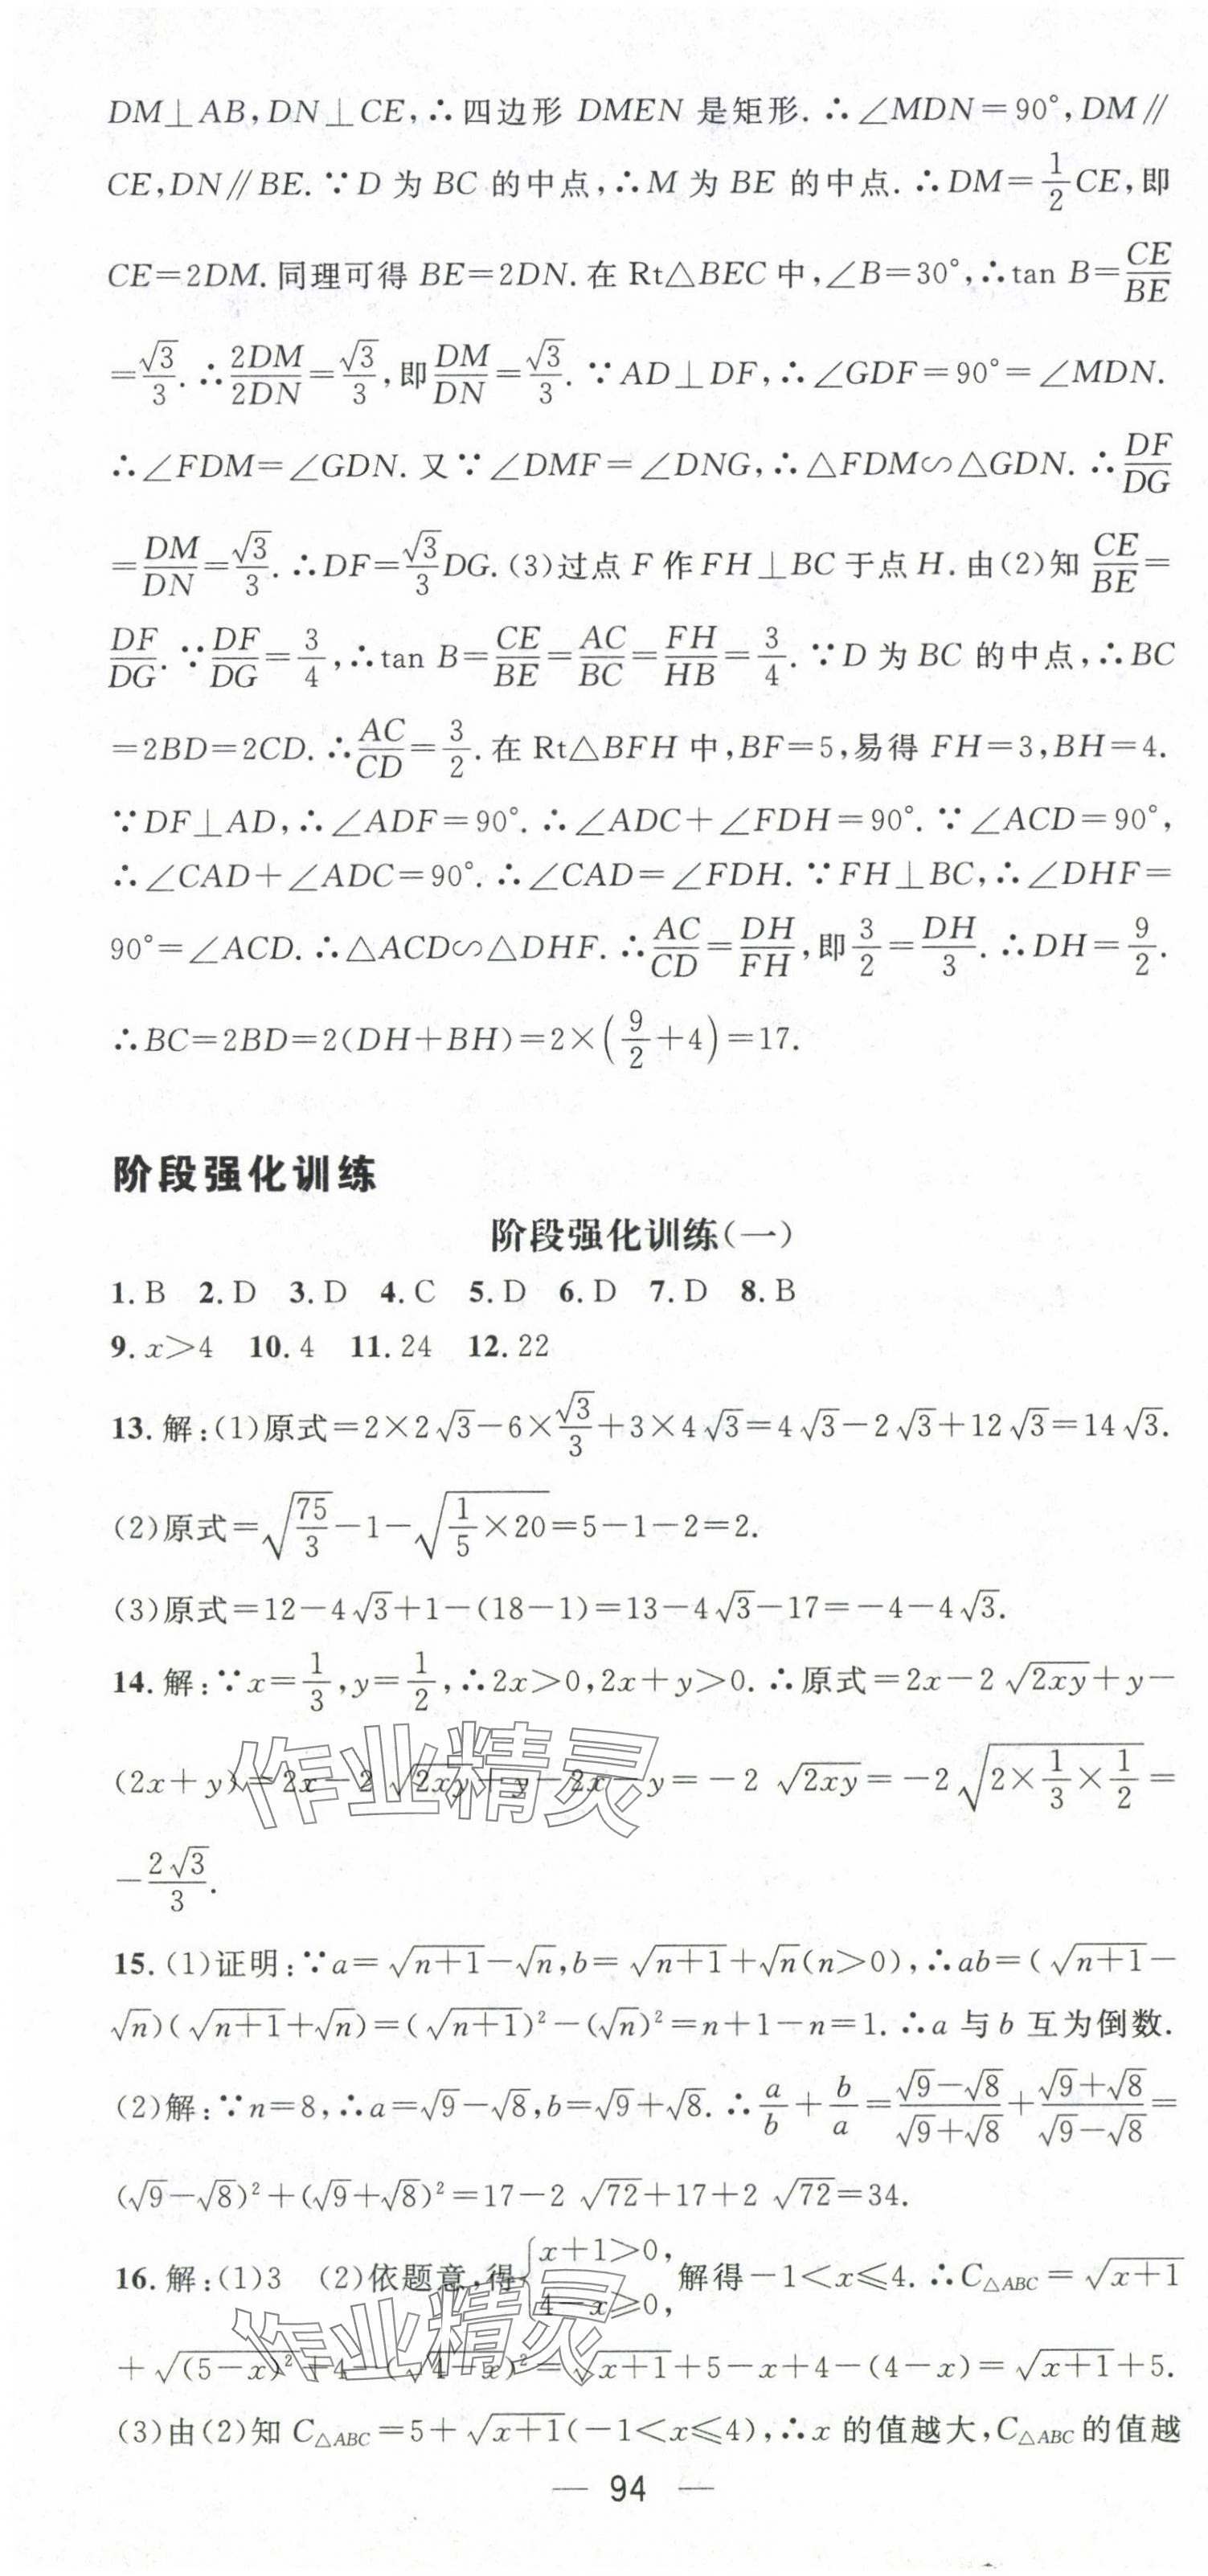 DM⊥AB,DN⊥CE,∴四边形 DMEN 是矩形.∴∠MDN=90°,DM∥
CE,DN∥BE.∵D 为 BC 的中点,∴M 为 BE 的中点.∴DM=1/2CE,即
CE=2DM.同理可得 BE=2DN.在 Rt△BEC 中,∠B=30°,∴tan B=CE/BE
=√3/3.∴2DM/2DN=√3/3,即DM/DN=√3/3.∵AD⊥DF,∴∠GDF=90°=∠MDN.
∴∠FDM=∠GDN.又∵∠DMF=∠DNG,∴△FDM∽△GDN.∴DF/DG
=DM/DN=√3/3.∴DF=√3/3DG.(3)过点 F 作 FH⊥BC 于点 H.由(2)知 CE/BE=
DF/DG.∵DF/DG=3/4,∴tan B=CE/BE=AC/BC=FH/HB=3/4.∵D 为 BC 的中点,∴BC
=2BD=2CD.∴AC/CD=3/2.在 Rt△BFH 中,BF=5,易得 FH=3,BH=4.
∵DF⊥AD,∴∠ADF=90°.∴∠ADC+∠FDH=90°.∵∠ACD=90°,
∴∠CAD+∠ADC=90°.∴∠CAD=∠FDH.∵FH⊥BC,∴∠DHF=
90°=∠ACD.∴△ACD∽△DHF.∴AC/CD=DH/FH,即3/2=DH/3.∴DH=9/2.
∴BC=2BD=2(DH+BH)=2×(9/2+4)=17.
阶段强化训练
阶段强化训练(一)
1.B 2.D 3.D 4.C 5.D 6.D 7.D 8.B
9.x>4 10.4 11.24 12.22
13.解:(1)原式=2×2√3-6×√3/3+3×4√3=4√3-2√3+12√3=14√3.
(2)原式=√(75/3)-1-√(1/5×20)=5-1-2=2.
(3)原式=12-4√3+1-(18-1)=13-4√3-17=-4-4√3.
14.解:∵x=1/3,y=1/2,∴2x>0,2x+y>0.∴原式=2x-2√(2xy)+y-
(2x+y)=2x-2√(2xy)+y-2x-y=-2√(2xy)=-2√(2×1/3×1/2)=
-2√3/3.
15.(1)证明:∵a=√(n+1)-√n,b=√(n+1)+√n(n>0),∴ab=(√(n+1)-
√n)(√(n+1)+√n)=(√(n+1))²-(√n)²=n+1-n=1.∴a 与 b 互为倒数.
(2)解:∵n=8,∴a=√9-√8,b=√9+√8.∴a/b+b/a=(√9-√8)/(√9+√8)+(√9+√8)/(√9-√8)=
(√9-√8)²+(√9+√8)²=17-2√72+17+2√72=34.
16.解:(1)3 (2)依题意,得{x+1>0,4-x≥0,解得-1<x≤4.∴C△ABC=√(x+1)
+√((5-x)²)+4-(√(4-x))²=√(x+1)+5-x+4-(4-x)=√(x+1)+5.
(3)由(2)知 C△ABC=5+√(x+1)(-1<x≤4),∴x 的值越大,C△ABC的值越
— 94 —
作业精灵
作业精灵